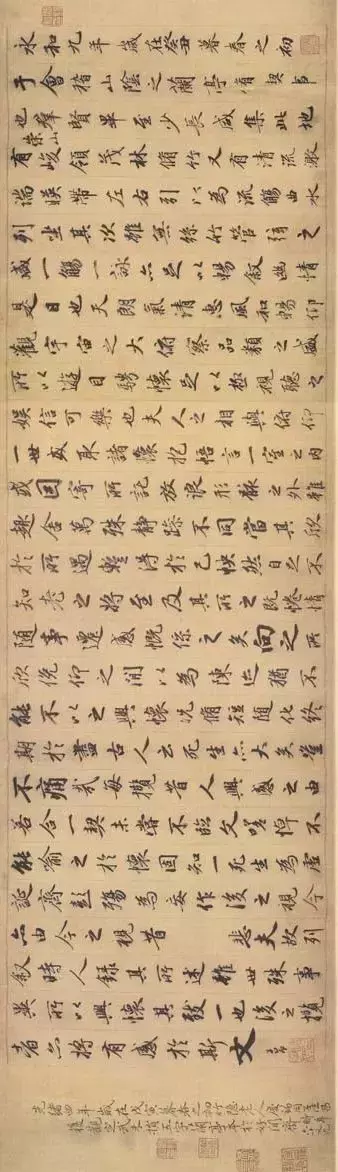 永和九年歲在癸丑暮春之初
于會稽山陰之蘭亭脩禊事
也羣賢畢至少長咸集此地
有崇山峻領茂林脩竹又有清流激
湍暎帶左右引以為流觴曲水
列坐其次雖無絲竹管弦之
盛一觴一詠亦足以暢敘幽情
是日也天朗氣清惠風和暢仰
觀宇宙之大俯察品類之盛
所以遊目騁懷足以極視聽之
娛信可樂也夫人之相與俯仰
一世或取諸懷抱悟言一室之內
或因寄所託放浪形骸之外雖
趣舍萬殊靜躁不同當其欣
於所遇蹔得於己怏然自足不
知老之將至及其所之既惓情
隨事遷感慨係之矣向之所
欣俛仰之間以為陳迹猶不
能不以之興懷況脩短隨化終
期於盡古人云死生亦大矣豈
不痛哉每攬昔人興感之由
若合一契未嘗不臨文嗟悼不
能喻之於懷固知一死生為虛
誕齊彭殤為妄作後之視今
亦由今之視昔 悲夫故列
敘時人錄其所述雖世殊事
異所以興懷其致一也後之攬
者亦將有感於斯文 子昂
光緒四年歲在戊寅暮春之初